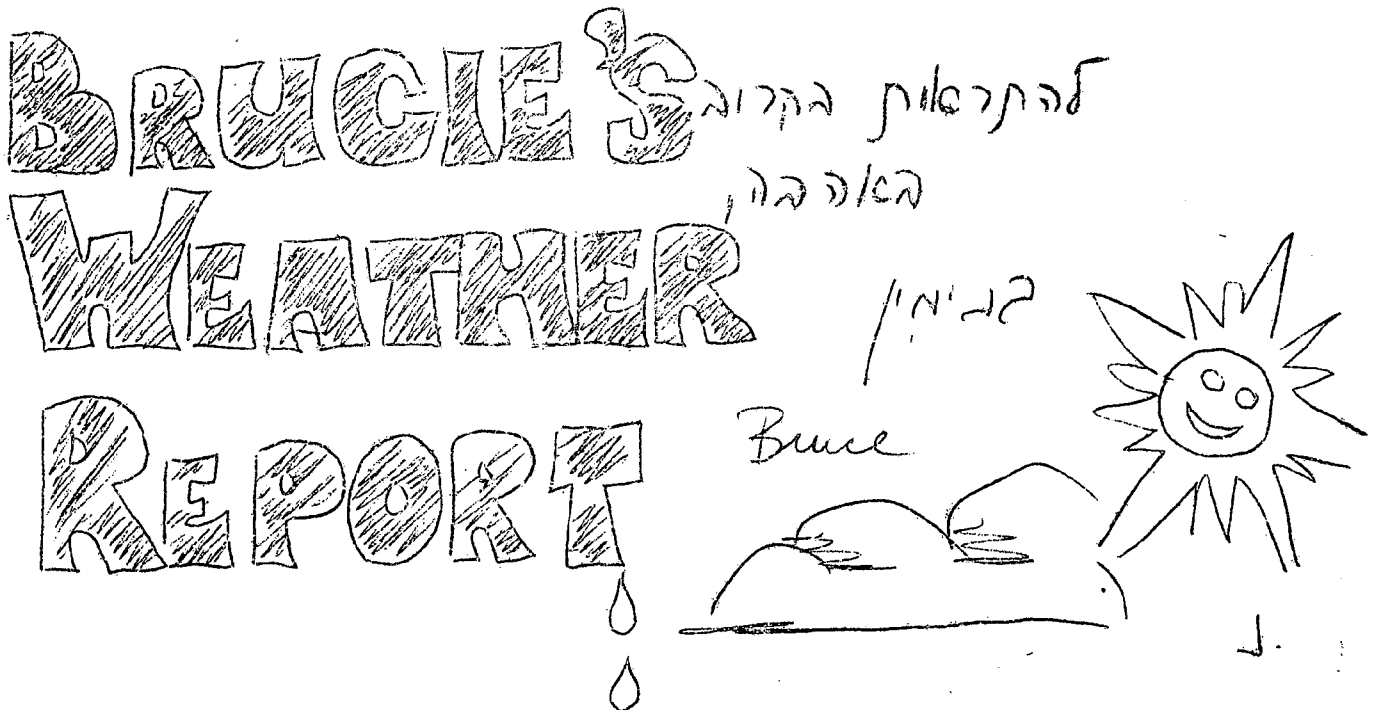 BRUCIE'S
WEATHER
REPORT
להתראות בקרוב
באהבה,
בנימין
Bruce